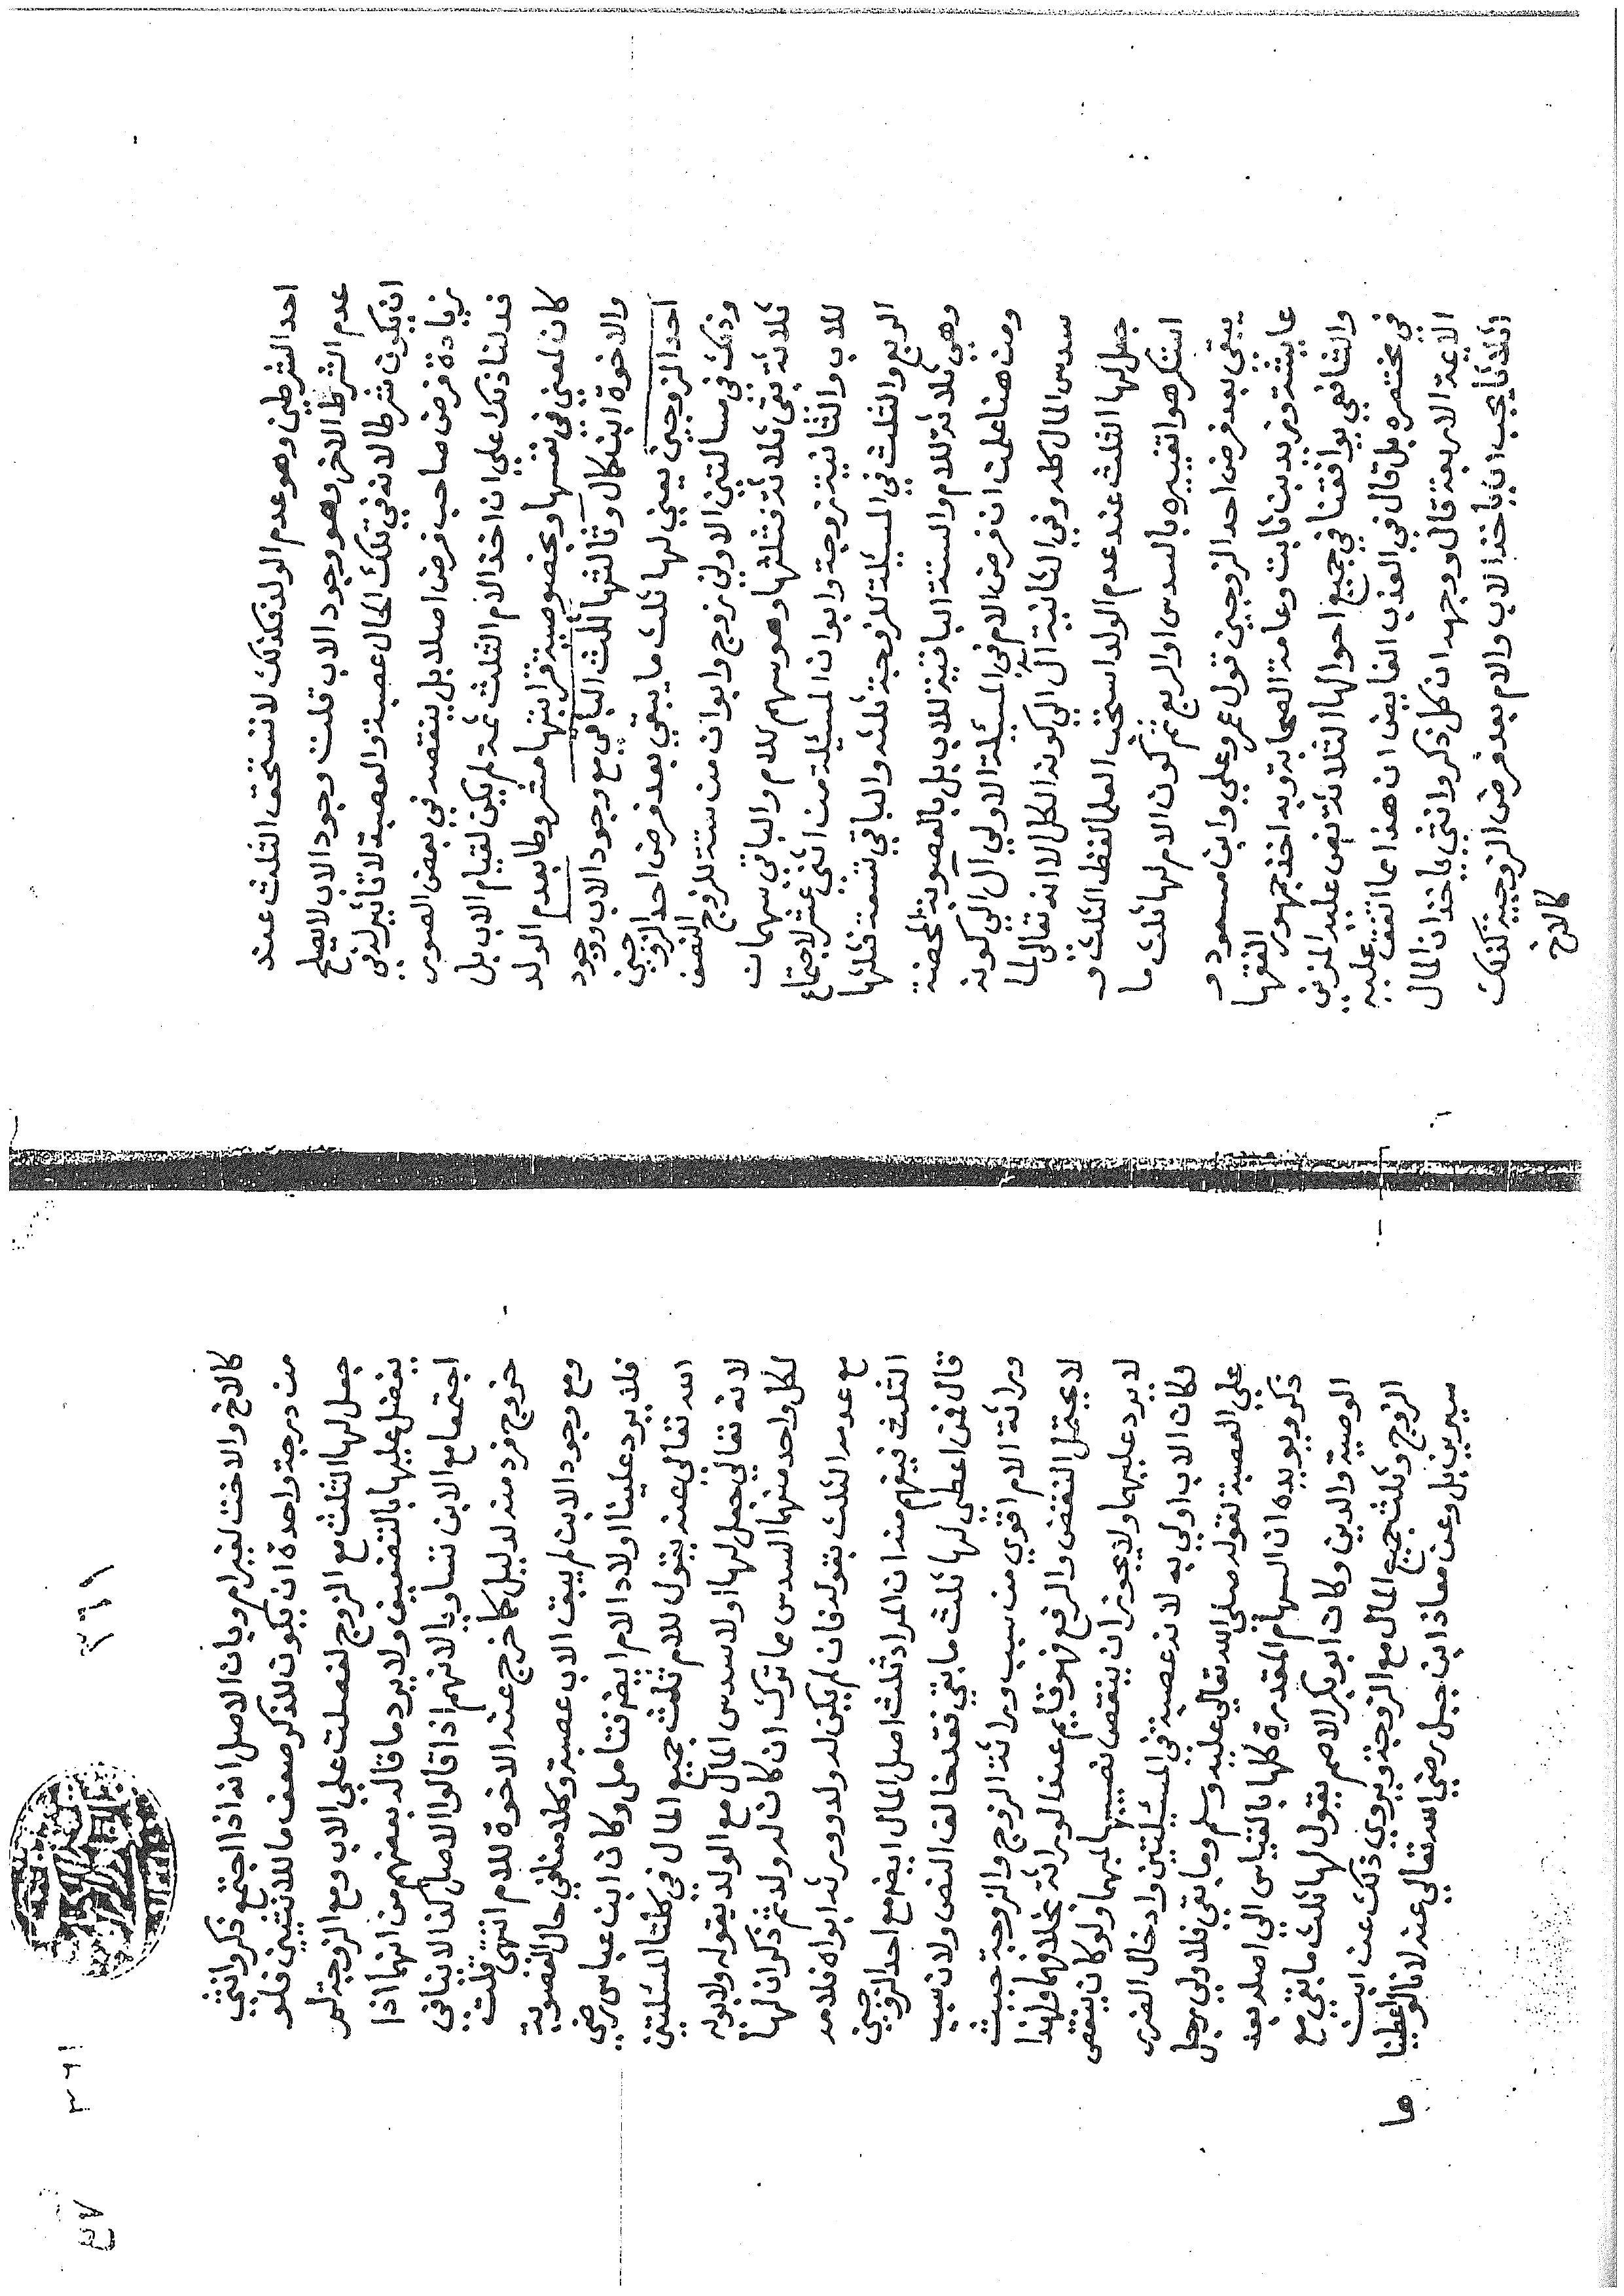 احد الشرطين وهو عدم الولد فكذلك لا تستحق الثلث عند
عدم الشرط الاخر وهو وجود الاب قلت وجود الاب لا يصلح
ان يكون شرطا لانه في تلك الحال عصبة والعصبة لا تاثير له في
زيادة فرض صاحب فرض اصلا بل ينقصه في بعض الصور
فدلنا ذلك على ان اخذ الام الثلث ثمة لم يكن لقيام الاب بل
كان لمعنى في نفسها وبخصوصية قرابتها مشروطا بعدم الولد
والاخوة البنكمال وثالثها ثلث الباقي مع وجود الاب ووجود
احد الزوجين يعني لها ثلث ما يبقى بعد فرض احد الزوجين
وذلك في مسالتين الاولى زوج وابوان من ستة للزوج النصف
ثلاثة بقى ثلاثة فثلثها وهو سهم للام والباقي سهمان
للاب والثانية زوجة وابوان المسئلة من اثنى عشر لاجتماع
الربع والثلث في المسيلة للزوجة ثلثه والباقي تسعة ثلثها
وهي ثلاثة للام والستة الباقية للاب بل بالعصوبة المحضة
ومن هنا علمت ان فرض الام في المسيلة الاولى ال الى كونه
سدس المال كله وفي الثانية ال الى كونه ربع الكل الا انه تعالى لما
جعل لها الثلث عند عدم الولد استحب العلما لفظ الثلث و
استكرهوا تغييره بالسدس او الربع ثم كون الام لها ثلث ما
يبقى بعد فرض احد الزوجين قول عمر وعلي وابن مسعود و
عايشة وزيد بن ثابت وعامة الصحابة وبه اخذ جمهور الفقها
والشافعي يوافقنا في جميع احوالها الثلاثة نص عليه المزني
في مختصره بل قال في العذب الفايض ان هذا مما اتفق عليه
الايمة الاربعة قال ووجهه ان كل ذكر وانثى ياخذان المال
اثلاثا يجب ان ياخذ الاب والام بعد فرض الزوجية كذلك
كالاخ
٣٦١
كالاخ والاخت لغير ام وبان الاصل انه اذا اجتمع ذكر وانثى
من درجة واحدة ان يكون للذكر ضعف ما للانثيين فلو
جعل لها الثلث مع الزوج لفضلت على الاب ومع الزوجة لم
يفضل عليها بالتضعيف ولا يرد ما قاله بعضهم من انهما اذا
اجتمعا مع الابن تساويا لانهم اذا قالوا الاصل كذا لا ينافي
خروج فرد منه لدليل كما خرج عنه الاخوة للام انتهى قلت
ومع وجود الابن لم يبق الاب عصبة وكلامنا في حال العصوبة
فلا يرد علينا اولاد الام ايضا فتامل وكان ابن عباس رضي
الله تعالى عنه يقول للام ثلث جميع المال في كلتا المسئلتين
لانه تعالى جعل لها اولا سدس المال مع الولد بقوله ولابويه
لكل واحد منهما السدس مما ترك ان كان له ولد ثم ذكر ان لها
مع عدمه الثلث بقوله فان لم يكن له ولد وورثه ابواه فلامه
الثلث فيفهم منه ان المراد ثلث اصل المال ايضا مع احد الزوجين
قال فمن اعطى لها ثلث ما بقي فقد خالف النص ولان سبب
وراثة الام اقوى من سبب وراثة الزوج والزوجة حيث
لا يحتمل النقض والرفع فهو قايم عند الوراثة بخلافهما ولهذا
لا يرد عليهما ولا يجوز ان ينقص نصيبها لمبهما ولو كان ينقص
لكان الاب اولى به لانه عصبة في المسيلتين وادخال الضرر
على العصبة لقوله صلى الله تعالى عليه وسلم وما بقي فلاولى رجل
ذكر ويويده ان السهام المقدرة كلها بالقياس الى اصله بعد
الوصية والدين وكان ابو بكر الاصم يقول لها ثلث ما بقي مع
الزوج وثلث جميع المال مع الزوجة ويروى ذلك عن ابن
سيرين بل وعن معاذ ابن جبل رضي الله تعالى عنه لانا لو اعطينا
ها
٣٦١